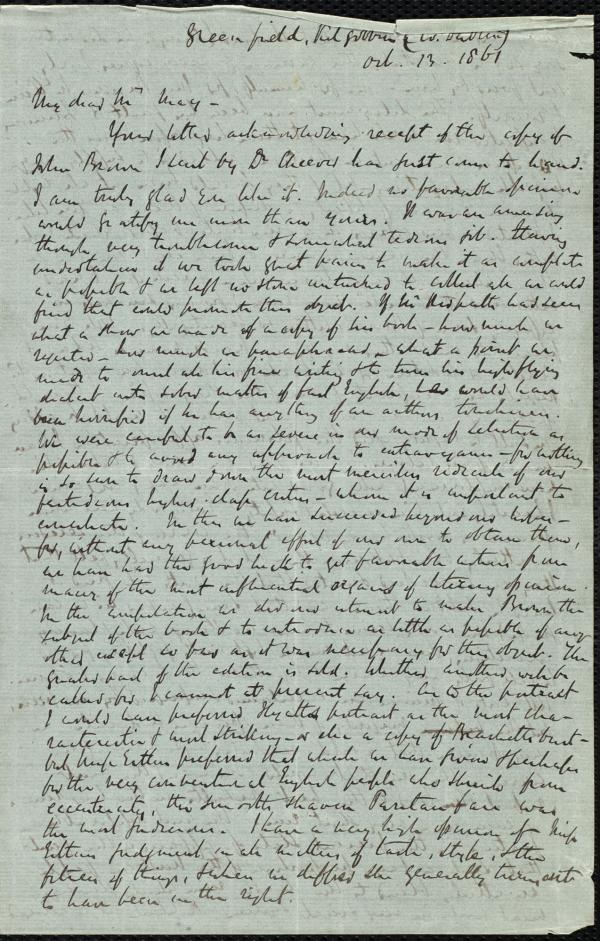 Greenfield, Kilgobbin, Co. Dublin
Oct. 13. 1861
My dear Mr May -
Your letter acknowledging receipt of the copy of
John Brown I sent by Dr Cheever has just come to hand.
I am truly glad you like it. Indeed no favorable opinion
would gratify me more than yours. It was an amusing
though very troublesome & somewhat tedious job. Having
undertaken it we took great pains to make it as complete
as possible & we left no stone unturned to collect all we could
find that could promote this object. If Mr Redpath had seen
what a show we made of a copy of his book - how much we
rejected - how much we paraphrased - what a point we
made to omit all his fine writing & to turn his highflying
dialect into sober matter of fact English, he would have
been horrified if he has anything of an authors touchiness.
We were careful to be as severe in our mode of selection as
possible & to avoid any approach to extravagance - for nothing
is so sure to draw down the most merciless ridicule of our
fastidious higher-class critics - whom it is important to
conciliate. In this we have succeeded beyond our hopes -
for, without any personal effort of our own to obtain them,
we have had the good luck to get favorable notices from
many of the most influential organs of literary opinion.
In the compilation we did our utmost to make Brown the
subject of the book & to introduce as little as possible of any
other except so far as it was necessary for this object. The
greater part of the edition is sold. Whether another will be
called for I cannot at present say. As to the portrait
I could have preferred Hyatts portrait as the most cha-
racteristic & most striking - or else a copy of Brackett's bust -
but Miss Estlin preferred that which we have given & perhaps
for the very conventional English people who shrink from
eccentricity, the smooth shaven Puritan face was
the most judicious. I have a very high opinion of Miss
Estlins judgment in all matters of taste, style, & the
fitness of things, & when we differed she generally turns out
to have been in the right.